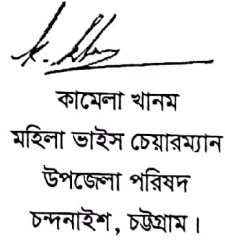 কামেলা খানম
মহিলা ভাইস চেয়ারম্যান
উপজেলা পরিষদ
চন্দনাইশ, চট্টগ্রাম।